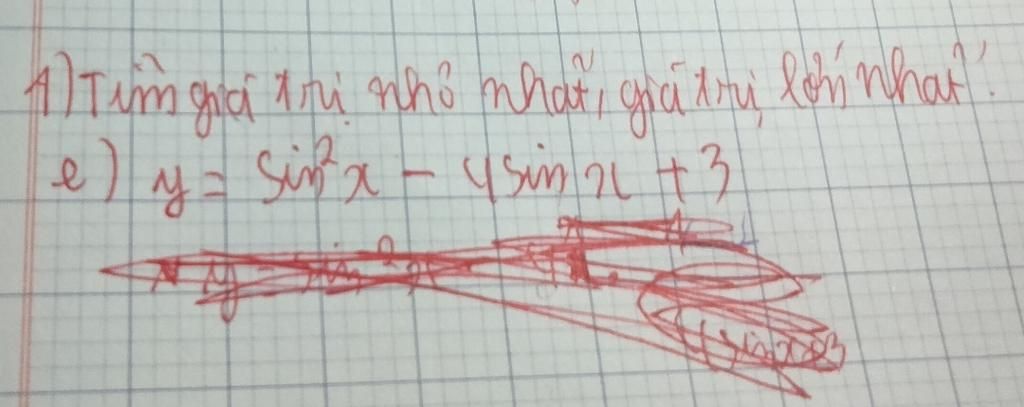 1) Tìm giá trị nhỏ nhất, giá trị lớn nhất.
e) y = sin²x - 4sin x + 3